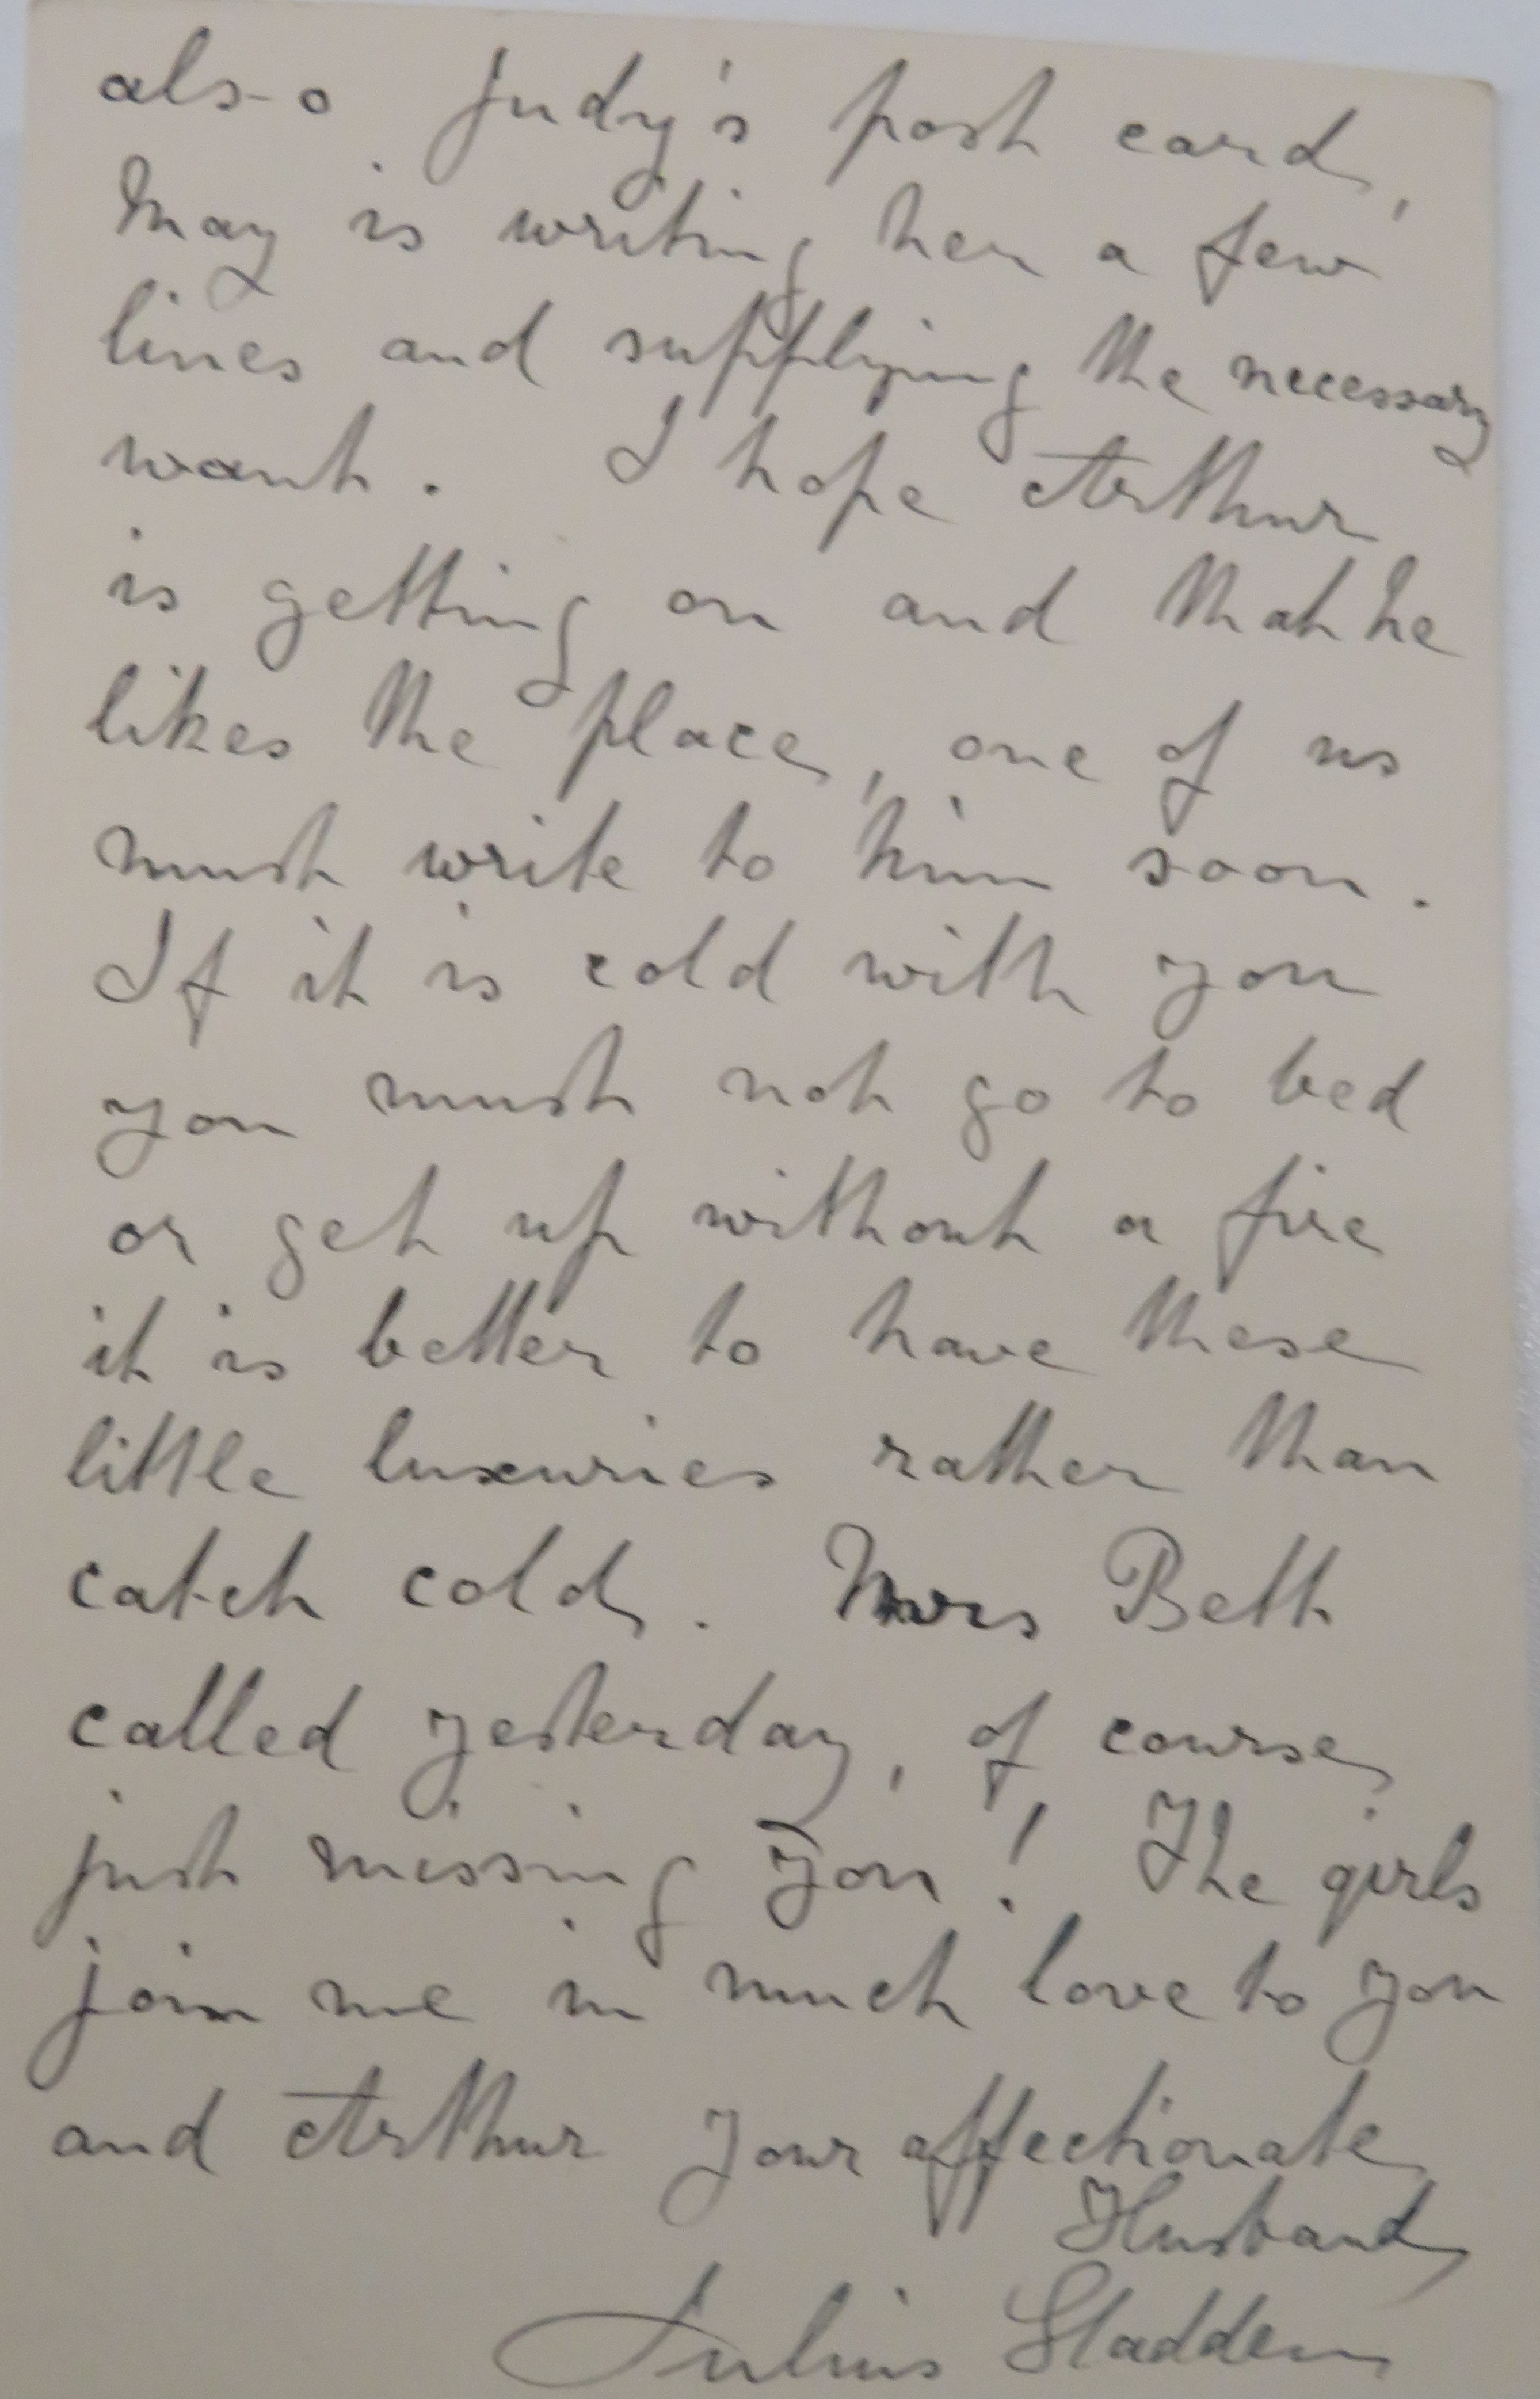 also Judy's post card,
May is writing her a few
lines and supplying the necessary
want. I hope Arthur
is getting on and that he
likes the place, one of us
must write to him soon.
If it is cold with you
you must not go to bed
or get up without a fire
it is better to have these
little luxuries rather than
catch cold. Mrs Bett
called yesterday, of course
just missing you! The girls
join me in much love to you
and Arthur Your affectionate
Husband
Julius Sladden